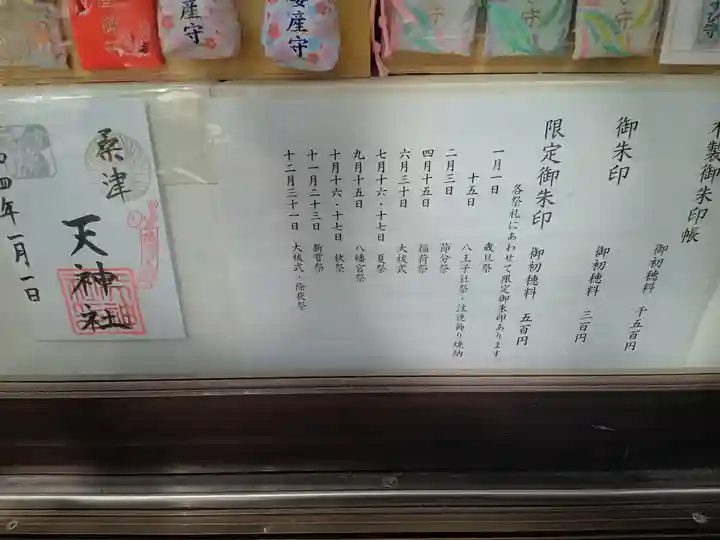 産守
安産守
守
守
木製御朱印帳
御初穂料 千五百円
御朱印
御初穂料 三百円
限定御朱印 御初穂料 五百円
各祭礼にあわせて限定御朱印あります
一月一日 歳旦祭
十五日 八王子社祭・注連飾り焼納
二月三日 節分祭
四月十五日 稲荷祭
六月三十日 大祓式
七月十六・十七日 夏祭
九月十五日 八幡宮祭
十月十六・十七日 秋祭
十一月二十三日 新嘗祭
十二月三十一日 大祓式・除夜祭
桑津
天神社
四年一月一日